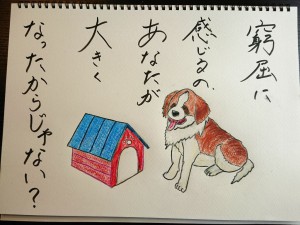 窮屈に
感じるの、
あなたが
大きく
なったからじゃない?